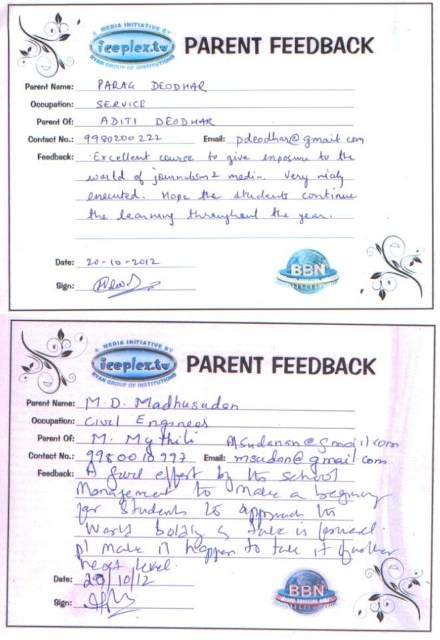 A MEDIA INITIATIVE BY
iceplex.tv
RYAN GROUP OF INSTITUTIONS
PARENT FEEDBACK
Parent Name: PARAG DEODHAR
Occupation: SERVICE
Parent Of: ADITI DEODHAR
Contact No.: 9980200222 Email: pdeodhar@gmail.com
Feedback: Excellent course to give exposure to the
world of journalism & media. Very nicely
executed. Hope the students continue
the learning throughout the year.
Date: 20-10-2012
Sign:
BBN
A MEDIA INITIATIVE BY
iceplex.tv
RYAN GROUP OF INSTITUTIONS
PARENT FEEDBACK
Parent Name: M.D. Madhusudan
Occupation: Civil Engineer
Parent Of: M. Mythili
Contact No.: Email: msudan@gmail.com
Feedback: A good effort by the school
Management to make a
for students to approach the
world boldly & take is forward.
pl make it happen to take it further
next level.
Date: 20/10/12
Sign:
BBN